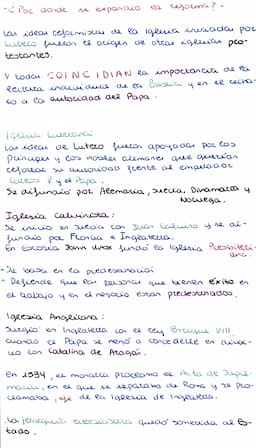 - ¿Por donde se expandio la reforma? -
Las ideas reformistas de la iglesia iniciadas por
Lutero fueron el origen de otras iglesias pro-
testantes.
Y todas COINCIDIAN la importancia de la
lectura individual de la Biblia y en el recha-
zo a la autoridad del Papa.
Iglesia Luterana
Las ideas de Lutero fueron apoyadas por los
principes y los nobles alemanes que querían
reforzar su autoridad frente al emperador
Carlos V y el Papa.
Se difundió por Alemania, Suecia, Dinamarca y
Noruega.
Iglesia Calvinista:
Se inicio en Suiza con Juan Calvino y se di-
fundio por Francia e Inglaterra.
En Escocia John Knox fundó la Iglesia Presbiteri-
ana.
- Se basa en la predestinación
- Defiende que las personas que tienen éxito en
el trabajo y en el negocio estan predestinados.
Iglesia Anglicana:
Surgió en Inglaterra con el rey Enrique VIII,
cuando el Papa se negó a concederle el divor-
cio con Catalina de Aragón.
En 1534, el monarca proclamo el Acta de Supre-
macia, en el que se separaba de Roma y se pro-
clamaba, jefe de la Iglesia de Inglaterra.
La jerarquía eclesiástica quedó sometida al Es-
tado.